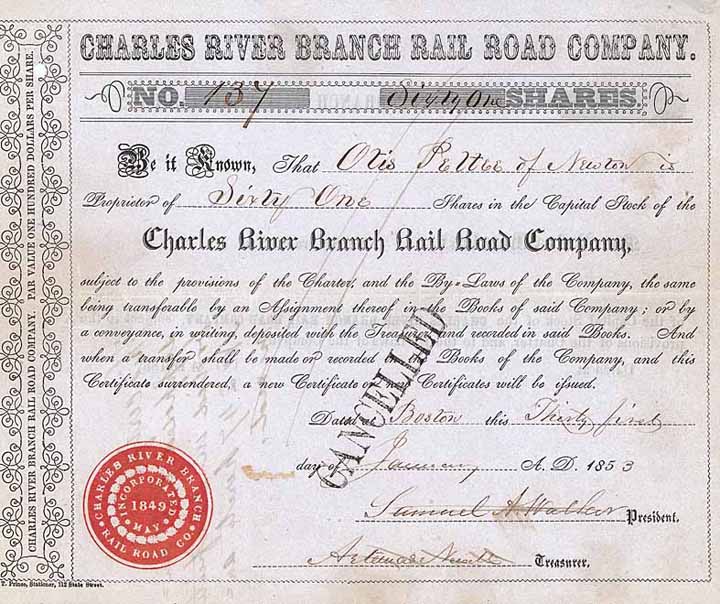 CHARLES RIVER BRANCH RAIL ROAD COMPANY.
NO. 137 Sixty One SHARES.
Be it Known, That Otis Pettee of Newton is
Proprietor of Sixty One Shares in the Capital Stock of the
Charles River Branch Rail Road Company,
subject to the provisions of the Charter, and the By-Laws of the Company, the same
being transferable by an Assignment thereof in the Books of said Company; or by
a conveyance, in writing, deposited with the Treasurer and recorded in said Books. And
when a transfer shall be made or recorded Books of the Company, and this
Certificate surrendered, a new Certificate or Certificates will be issued.
Dated at Boston this Thirty first
day of January A. D. 1853
CANCELLED
Samuel A. Walker President.
Treasurer.
CHARLES RIVER BRANCH
RAIL ROAD CO.
INCORPORATED
1849
MAY
CHARLES RIVER BRANCH RAIL ROAD COMPANY. PAR VALUE ONE HUNDRED DOLLARS PER SHARE.
T. Prince, Stationer, 112 State Street.